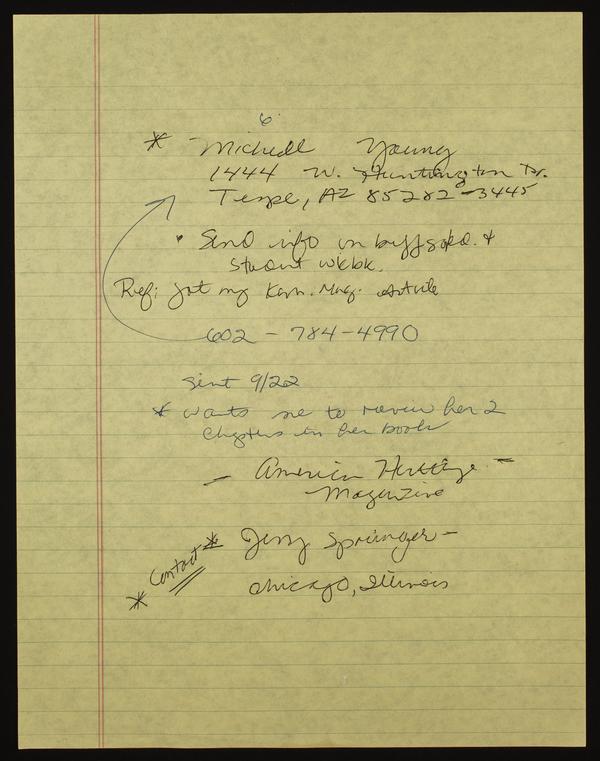 6
* Michell Young
1444 W. Huntington Dr.
Tempe, AZ 85282-3445
• Send info on buff sold. &
student wkbk.
Ref: got my Kan. Mag. Article
602-784-4990
sent 9/22
* wants me to review her 2
chapters in her book
- American Heritage -
Magazine
* Contact * Jerry Springer -
Chicago, Illinois